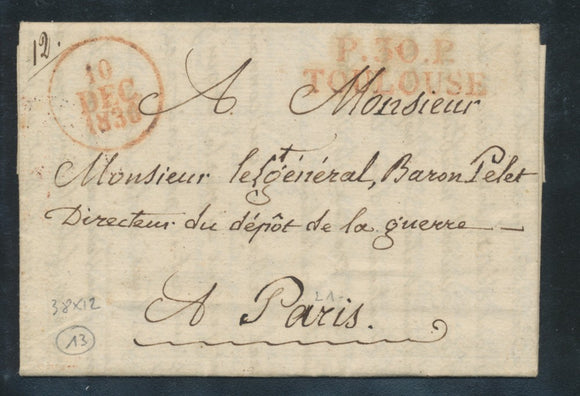 12.
P.30.P.
TOULOUSE
10
DEC
1830
A Monsieur
Monsieur le Lt général, Baron Pelet
Directeur du dépôt de la guerre
A Paris.
21-
38x12
13